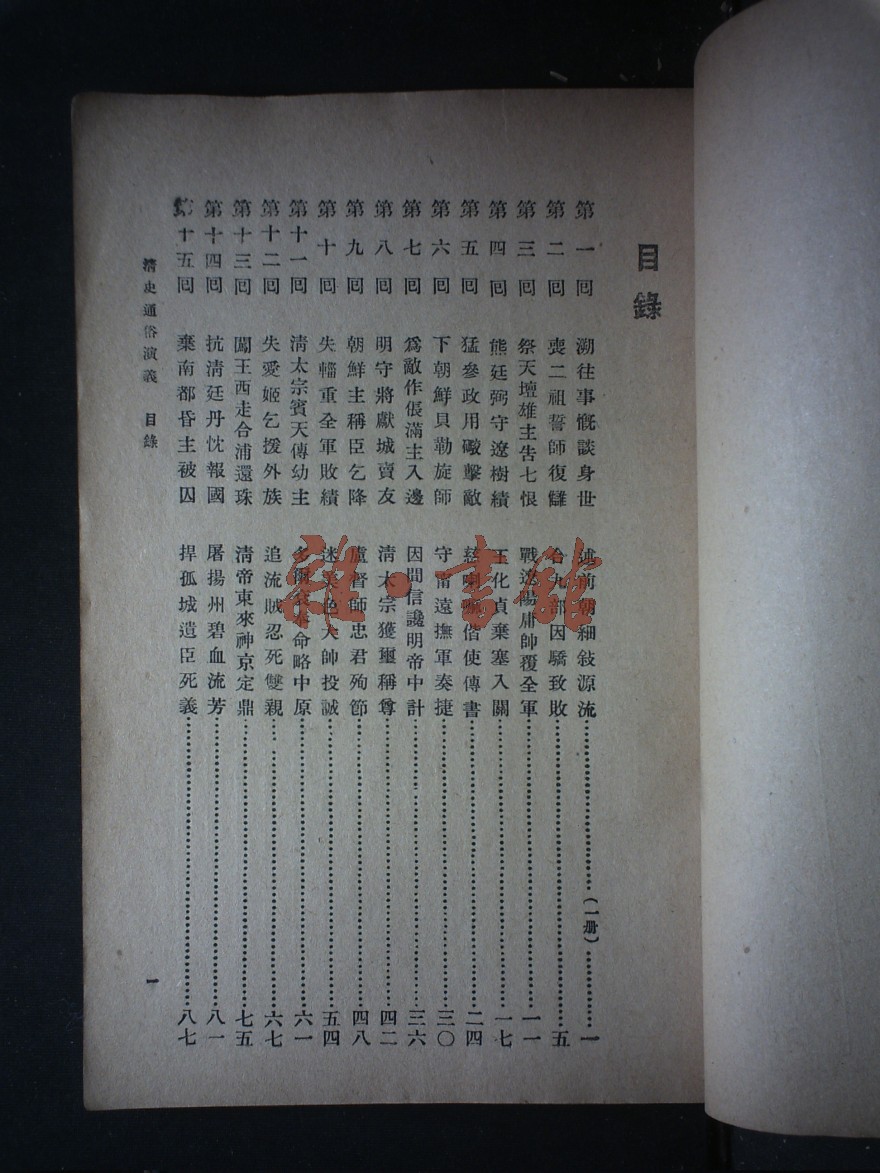 目錄
第一回 溯往事慨談身世 述前朝細敍源流……(一册)……一
第二回 喪二祖誓師復讎 合九部因驕致敗……五
第三回 祭天壇雄主告七恨 戰遼陽庸帥覆全軍……一一
第四回 熊廷弼守遼樹績 王化貞棄塞入關……一七
第五回 猛參政用礮擊敵 慈喇嘛偕使傳書……二四
第六回 下朝鮮貝勒旋師 守甯遠撫軍奏捷……三〇
第七回 爲敵作倀滿主入邊 因間信讒明帝中計……三六
第八回 明守將獻城賣友 清太宗獲璽稱尊……四二
第九回 朝鮮主稱臣乞降 盧督師忠君殉節……四八
第十回 失輜重全軍敗績 迷美色大帥投誠……五四
第十一回 清太宗賓天傳幼主 多爾袞奉命略中原……六一
第十二回 失愛姬乞援外族 追流賊忍死雙親……六七
第十三回 闖王西走合浦還珠 清帝東來神京定鼎……七五
第十四回 抗清廷丹忱報國 屠揚州碧血流芳……八一
第十五回 棄南都昏主被囚 捍孤城遺臣死義……八七
清史通俗演義 目錄 一
雜·書館